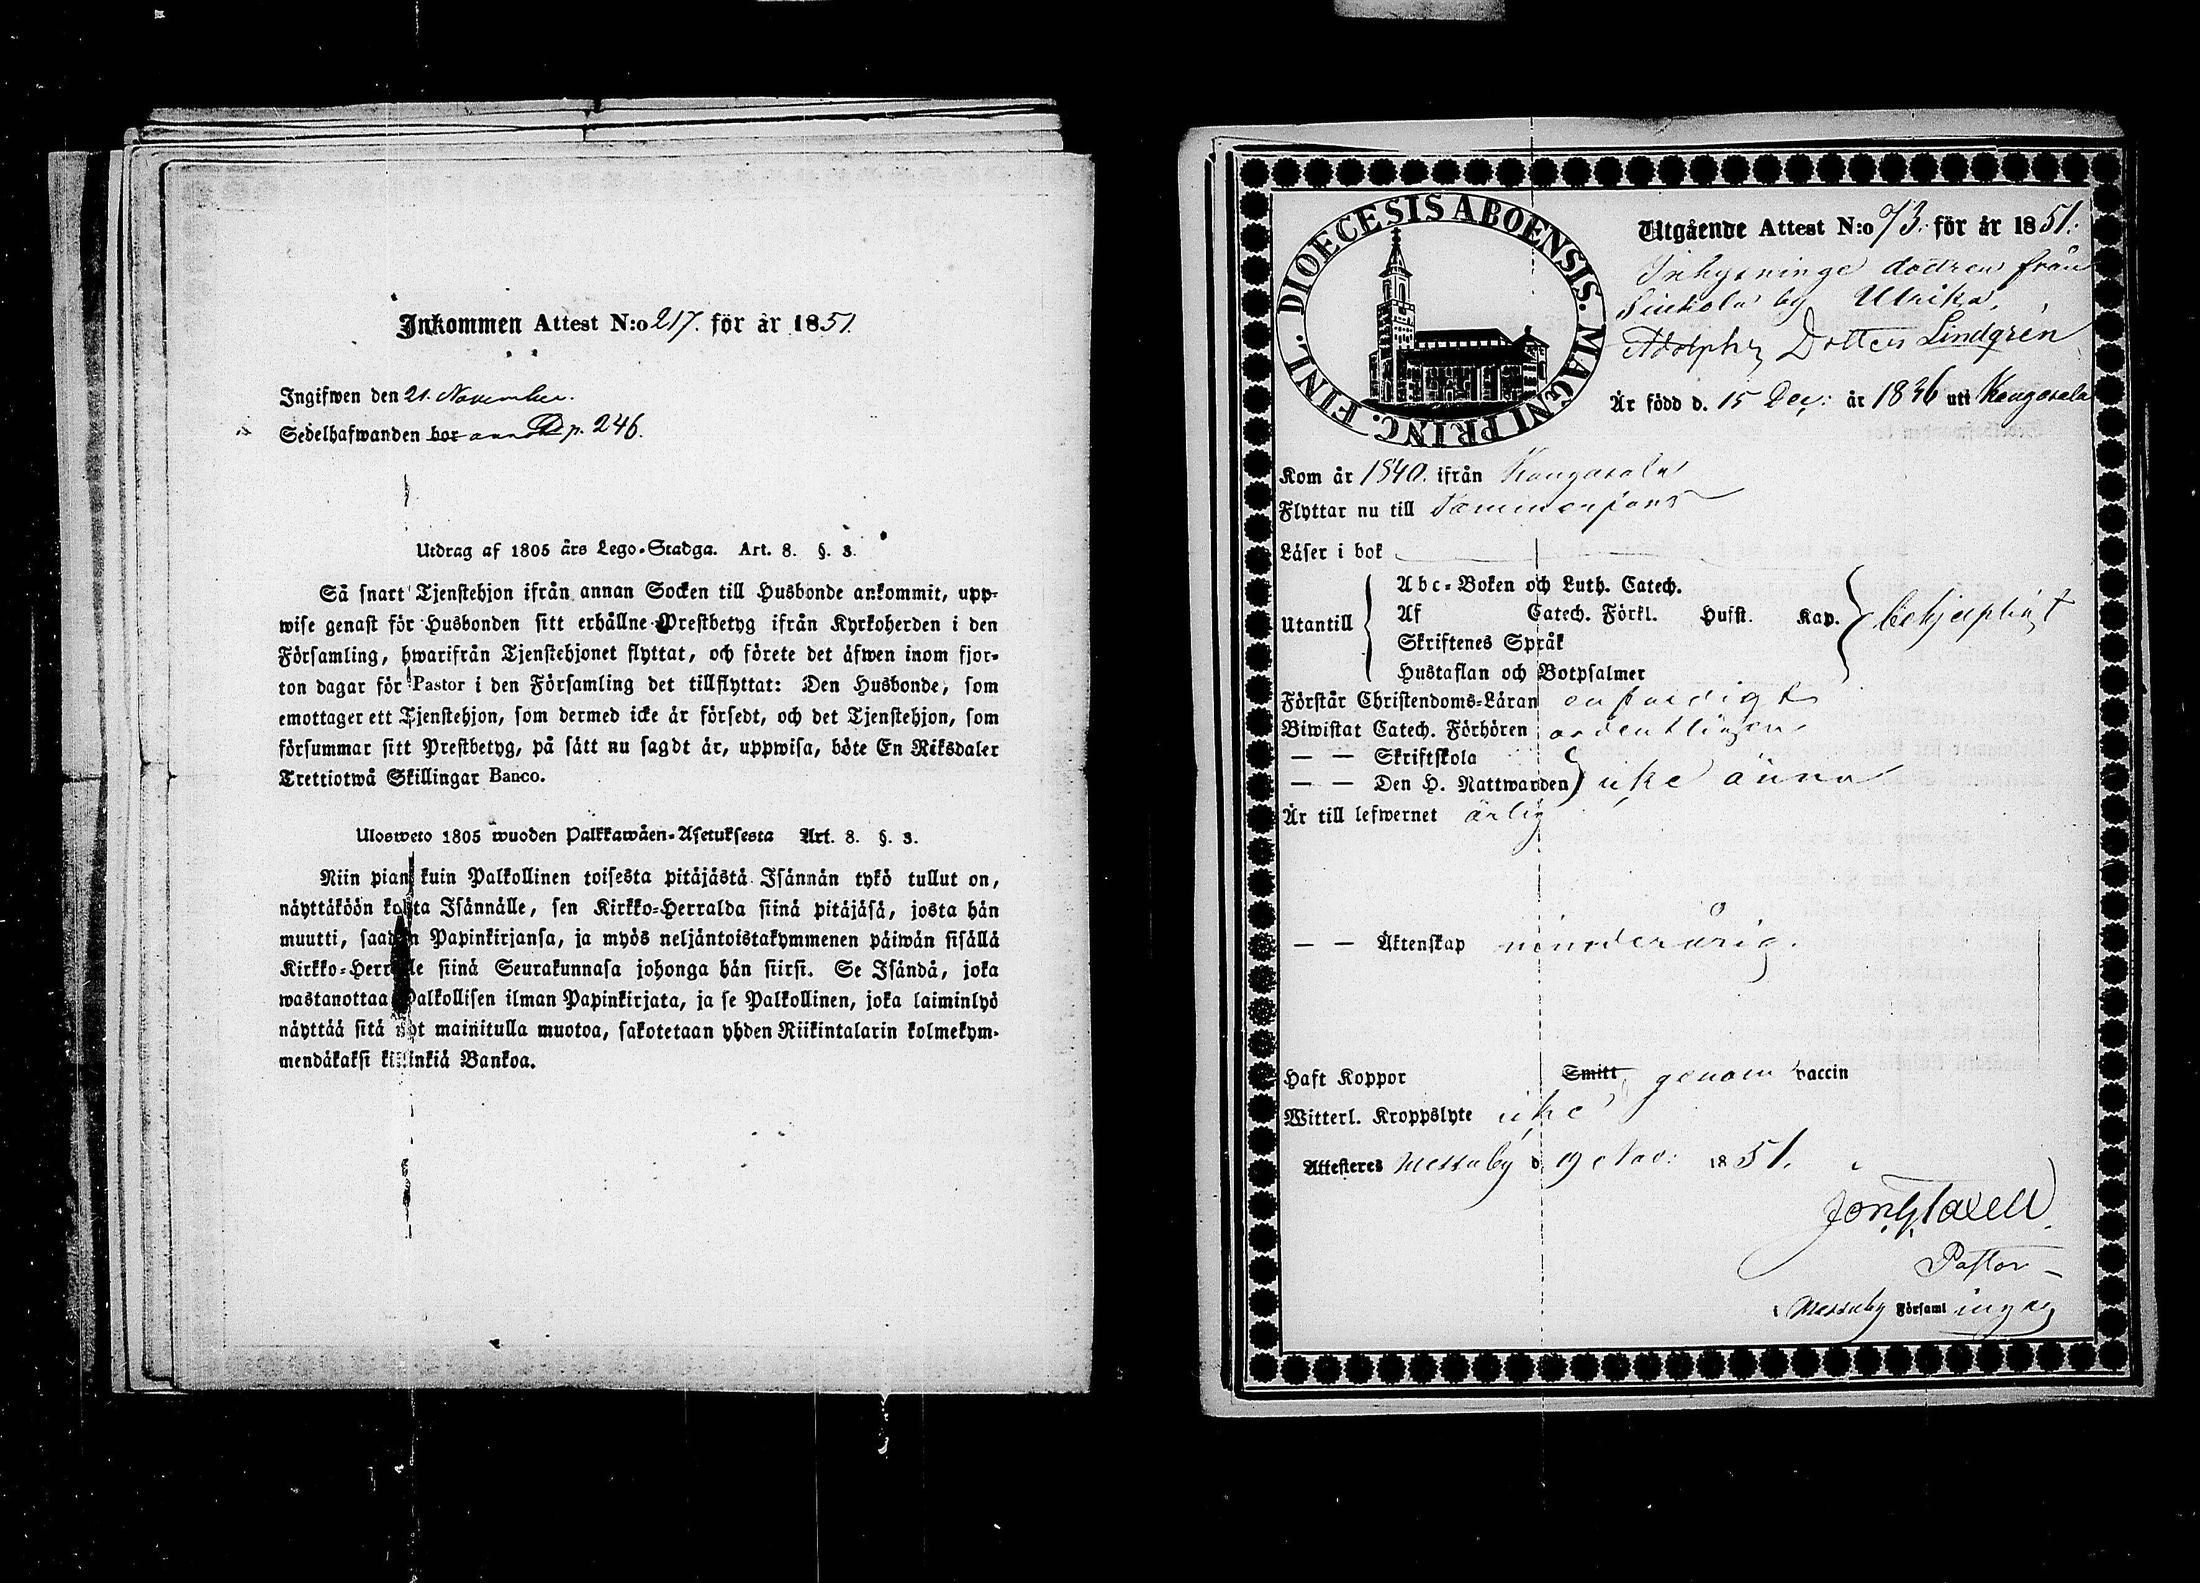 Inkommen Attest N:o 217. för år 1851.
Ingifwen den 21. November.
Sedelhafwanden bor p. 246.
Utdrag af 1805 års Lego-Stadga. Art. 8. §. 3.
Så snart Tjenstehjon ifrån annan Socken till Husbonde ankommit, upp-
wise genast för Husbonden sitt erhållne Prestbetyg ifrån Kyrkoherden i den
Församling, hwarifrån Tjenstehjonet flyttat, och förete det äfwen inom fjor-
ton dagar för Pastor i den Församling det tillflyttat: Den Husbonde, som
emottager ett Tjenstehjon, som dermed icke är försedt, och det Tjenstehjon, som
försummar sitt Prestbetyg, på sätt nu sagdt är, uppwisa, böte En Riksdaler
Trettiotwå Skillingar Banco.
Ulosweto 1805 wuoden Palkkawäen-Asetuksesta Art. 8. §. 3.
Niin pian kuin Palkollinen toisesta pitäjästä Isännän tykö tullut on,
näyttäköön kohta Isännälle, sen Kirkko-Herralda siinä pitäjäsä, josta hän
muutti, saadun Papinkirjansa, ja myös neljäntoistakymmenen päiwän sisällä
Kirkko-Herralle siinä Seurakunnasa johonga hän siirsi. Se Isändä, joka
wastanottaa Palkollisen ilman Papinkirjata, ja se Palkollinen, joka laiminlyö
näyttää sitä nyt mainitulla muotoa, sakotetaan yhden Riikintalarin kolmekym-
mendäkaksi killinkiä Bankoa.
DIOECESIS ABOENSIS. MAGNI PRINC. FINL.
Utgående Attest N:o 73. för år 1851.
Inhysninge dottren från
by Ulrika
Adolphs Dotter Lindgrén
Är född d. 15 Dec: år 1836 uti Kangasala
Kom år 1840. ifrån Kangasala
Flyttar nu till Tammerfors
Läser i bok
Utantill
Abc-Boken och Luth. Catech.
Af Catech. Förkl. Husst. Kap. behjelpligt
Skriftenes Språk
Hustaflan och Botpsalmer
Förstår Christendoms-Läran enfaldigt
Biwistat Catech. Förhören ordentligen
— — Skriftskola
— — Den H. Nattwarden icke ännu
Är till lefwernet ärlig
— — Äktenskap minderårig.
Haft Koppor Smitt genom vaccin
Witterl. Kroppslyte icke
Attesteres Messuby d. 19 Nov: 1851.
Jon. G. Taxell
Pastor
i Messuby Församlingar